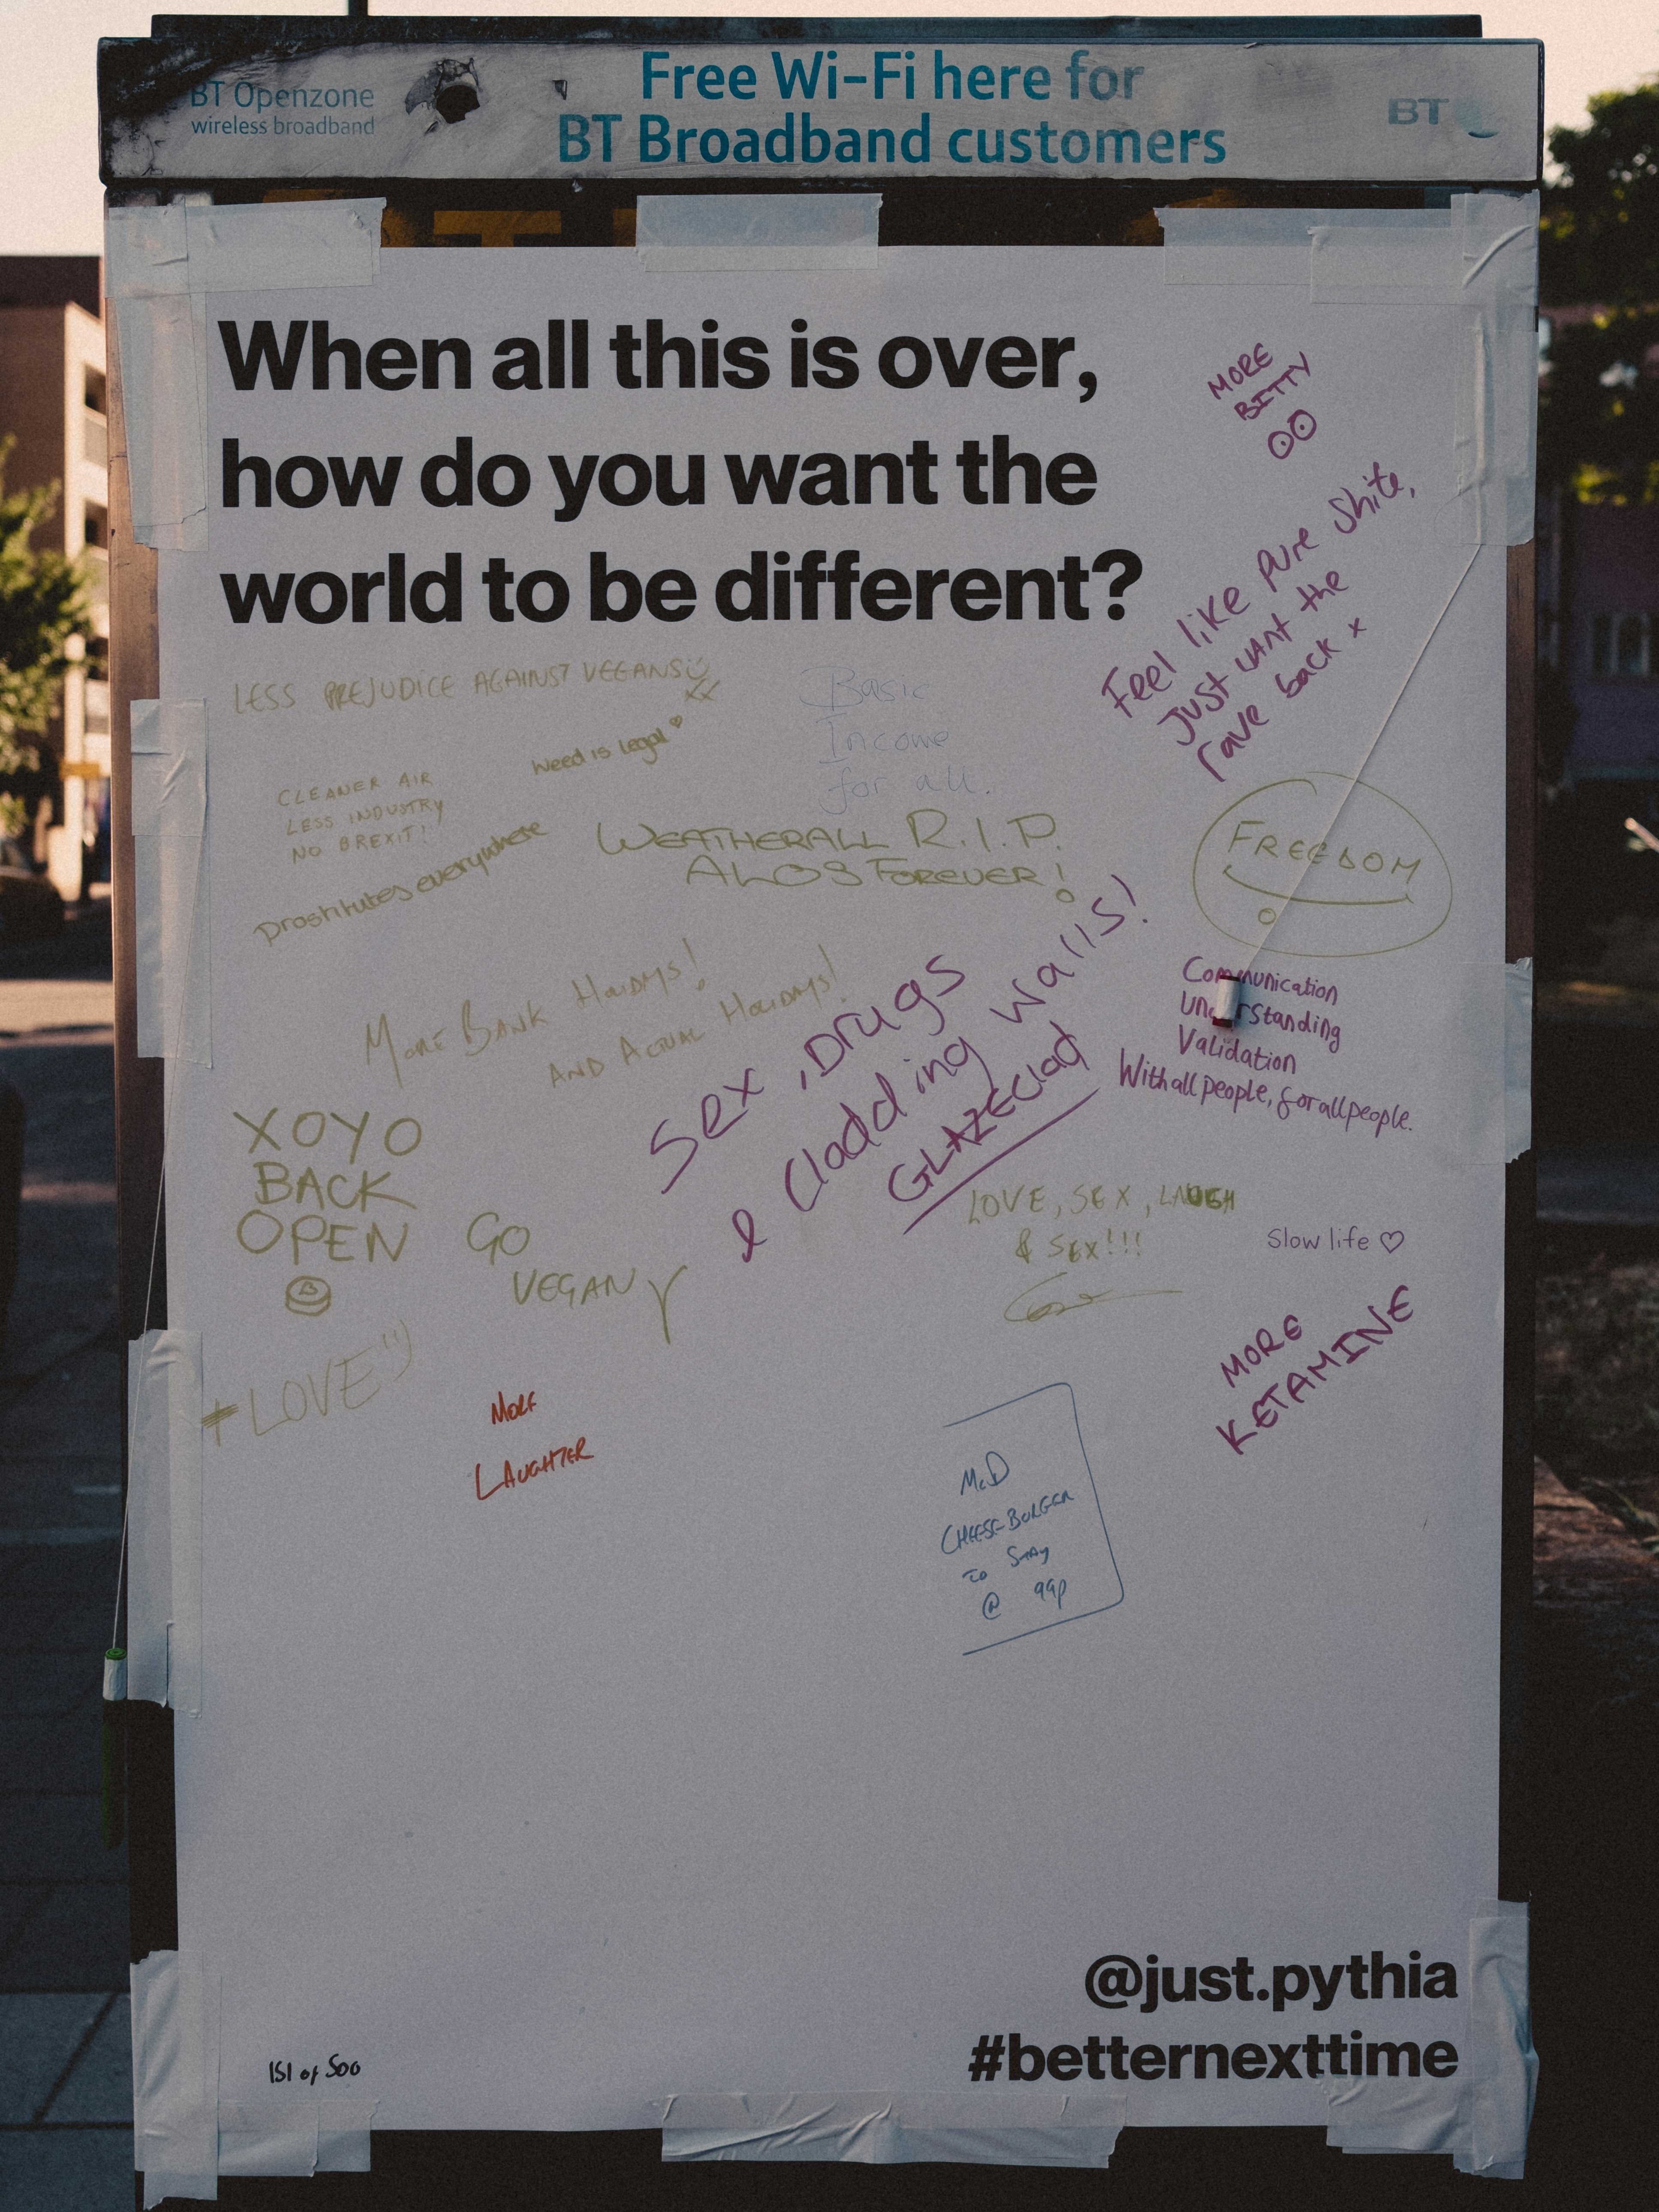 BT Openzone
wireless broadband
Free Wi-Fi here for
BT Broadband customers
BT
When all this is over,
how do you want the
world to be different?
MORE
BITTY
Feel like pure shite,
Just want the
rave back x
LESS PREJUDICE AGAINST VEGANS
xx
Basic
Income
for all.
Weed is legal
CLEANER AIR
LESS INDUSTRY
NO BREXIT!
Prostitutes everywhere
WEATHERALL R.I.P.
ALOS FOREVER!
FREEDOM
MORE BANK HOLIDAYS!
AND ACTUAL HOLIDAYS!
Sex, Drugs
& Cladding Walls!
GLAZECLad
Communication
Understanding
Validation
With all people, for all people.
XOYO
BACK
OPEN
GO
VEGAN
LOVE, SEX, LAUGH
& SEX!!!
Slow life ♡
+ LOVE
MORE
LAUGHTER
MORE
KETAMINE
McD
CHEESE-BURGER
TO STAY
@ 99p
@just.pythia
#betternexttime
151 of 500